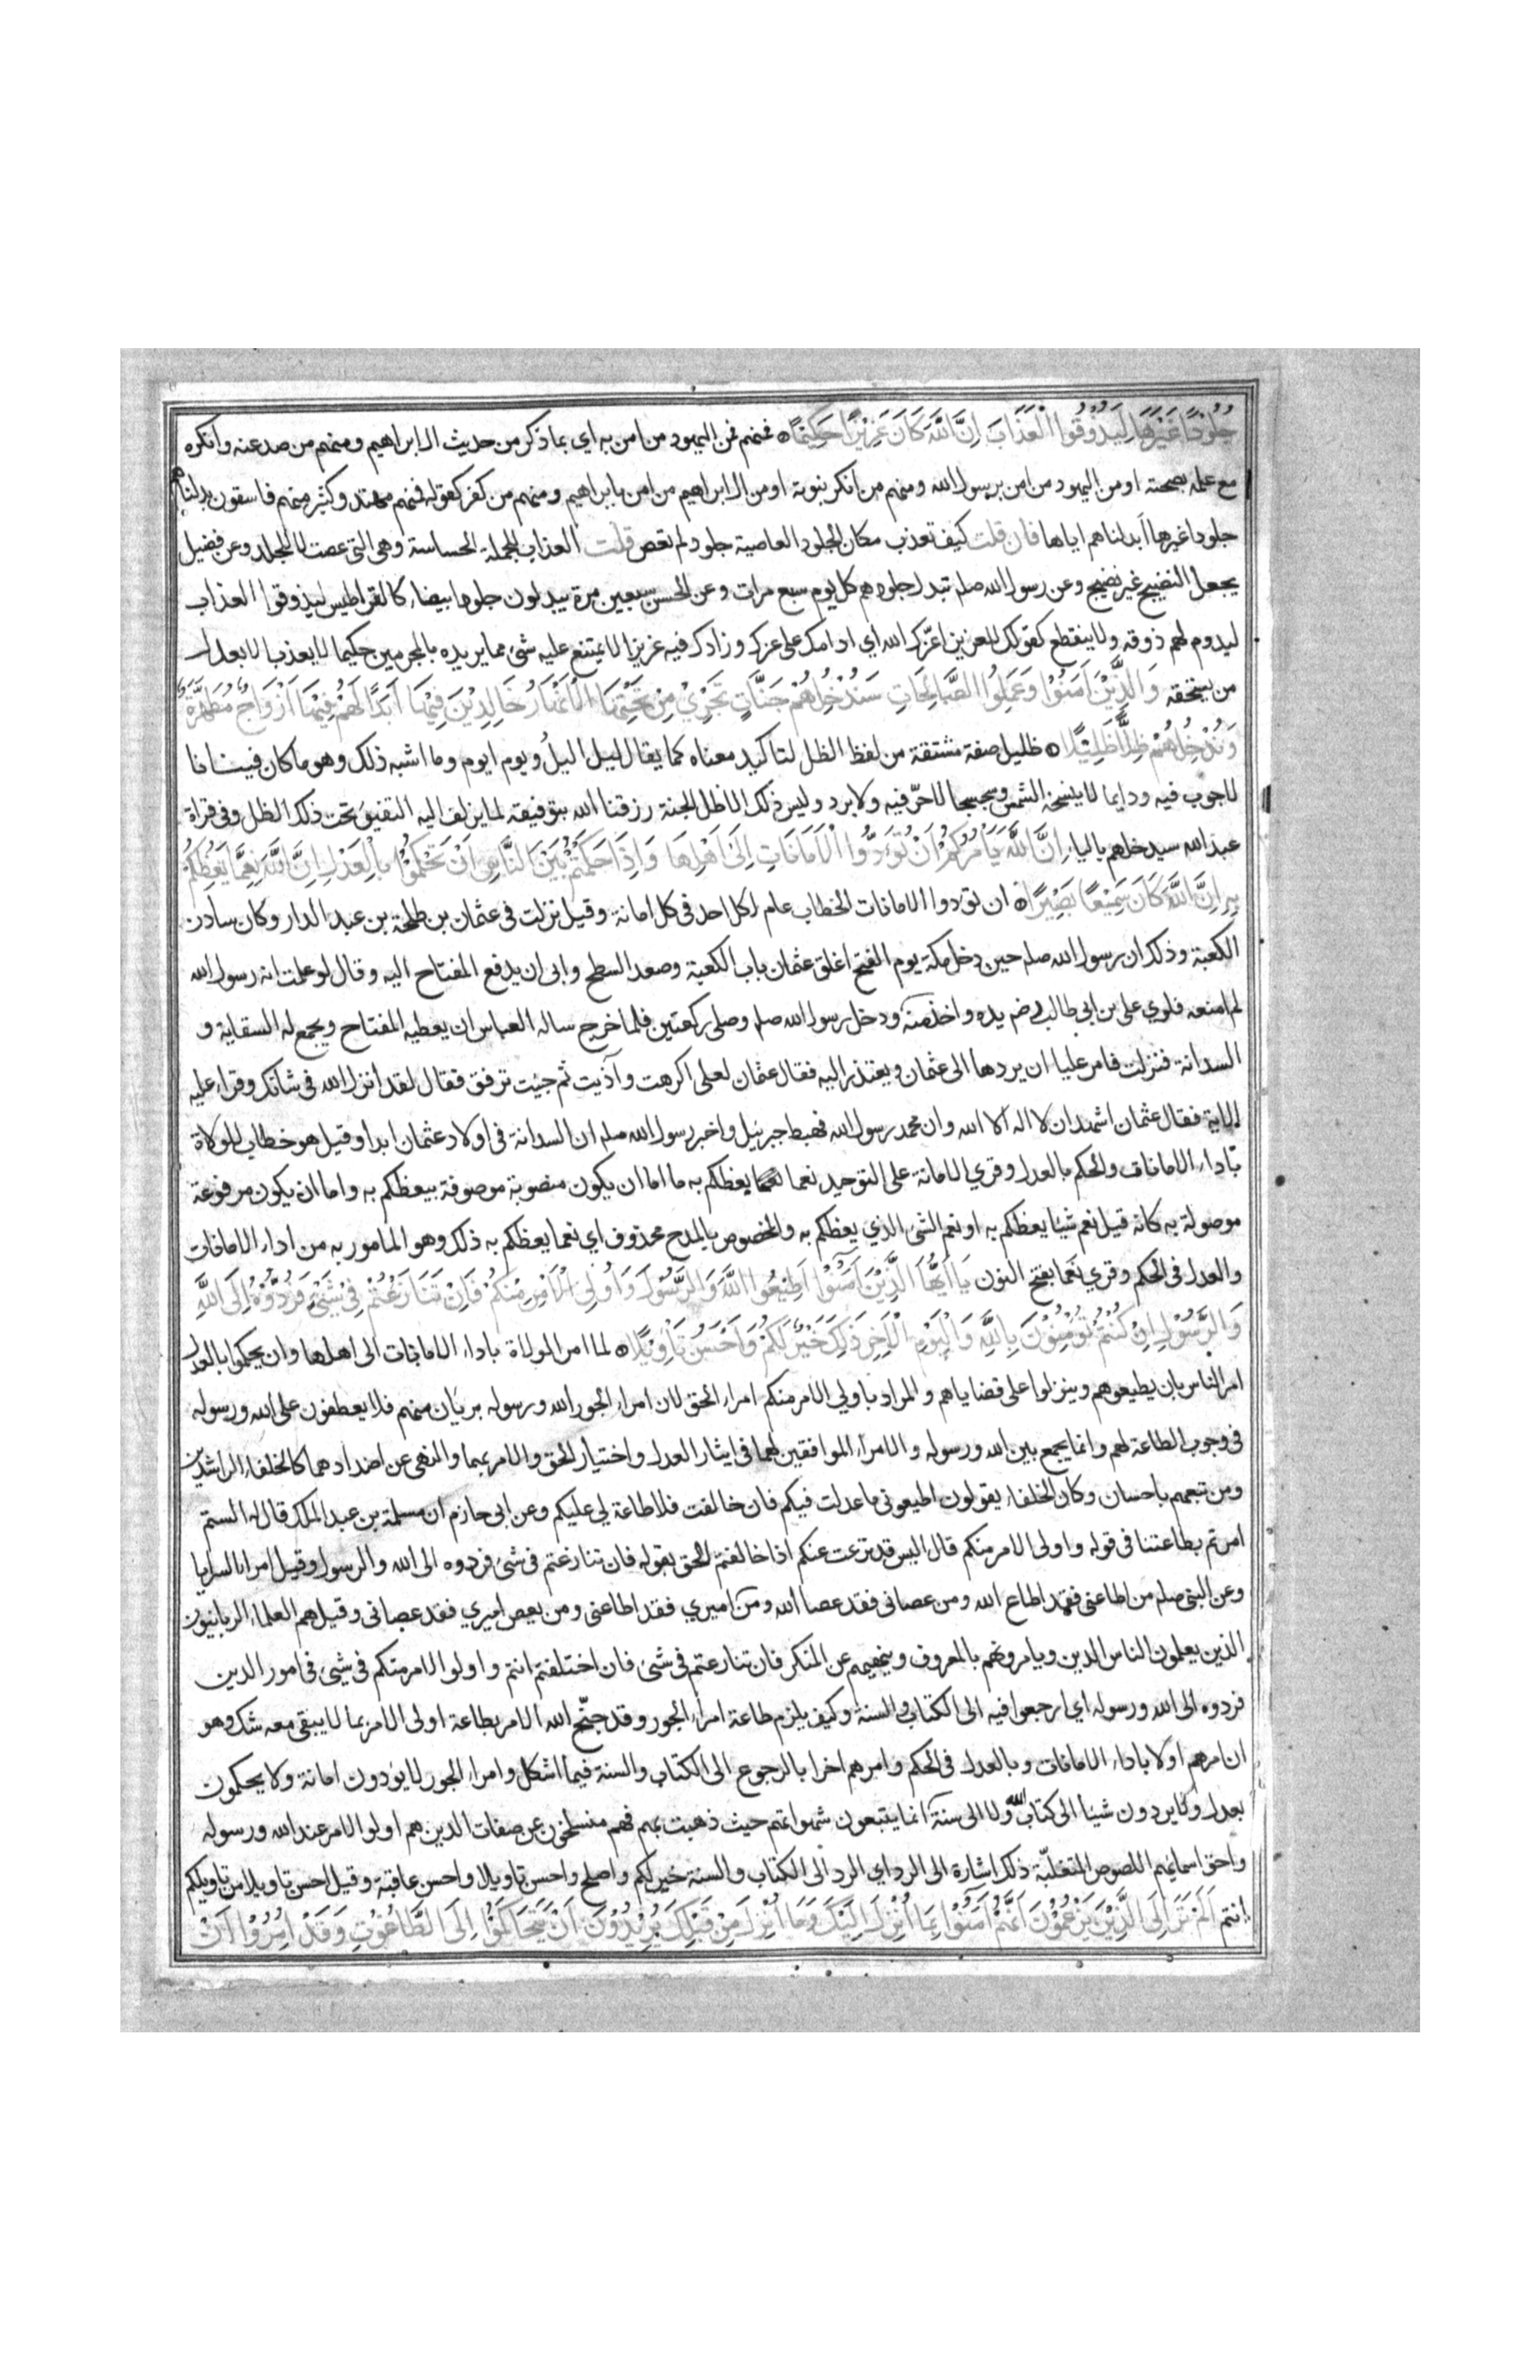 جُلُودًا غَيْرَهَا لِيَذُوقُوا الْعَذَابَ اِنَّ اللَّهَ كَانَ عَزِيْزًا حَكِيْمًا فمنهم فمن اليهود من امن به اي بما ذكر من حديث ال ابراهيم ومنهم من صد عنه وانكره
مع علمه بصحته او من اليهود من امن برسول الله ومنهم من انكر نبوته او من ال ابراهيم من امن بابراهيم ومنهم من كفر كقوله فمنهم مهتد وكثير منهم فاسقون بدلناهم
جلودا غيرها ابدلناهم اياها فان قلت كيف تعذب مكان الجلود العاصية جلود لم تعص قلت العذاب للجملة الحساسة وهي التي عصت لا للجلد وعن فضيل
يجعل النضيج غير نضيج وعن رسول الله صلم تبدل جلودهم كل يوم سبع مرات وعن الحسن سبعين مرة يبدلون جلودا بيضاء كالقراطيس ليذوقوا العذاب
ليدوم لهم ذوقه ولا ينقطع كقولك للعزيز اعزك الله اي ادامك على عزك وزادك فيه عزيزا لا يمتنع عليه شئ مما يريده بالمجرمين حكيما لا يعذب الا بعدل
من يستحقه وَالَّذِيْنَ آمَنُوْا وَعَمِلُوا الصَّالِحَاتِ سَنُدْخِلُهُمْ جَنَّاتٍ تَجْرِيْ مِنْ تَحْتِهَا الْاَنْهَارُ خَالِدِيْنَ فِيْهَا اَبَدًا لَهُمْ فِيْهَا اَزْوَاجٌ مُطَهَّرَةٌ
وَنُدْخِلُهُمْ ظِلًّا ظَلِيْلًا ظليل صفة مشتقة من لفظ الظل لتاكيد معناه كما يقال ليل اليل ويوم ايوم وما اشبه ذلك وهو ما كان فينانا
لا جوب فيه ودايما لا ينسخه الشمس وسجسجا لا حر فيه ولا برد وليس ذلك الا ظل الجنة رزقنا الله بتوفيقه لما يزلف اليه التفيؤ تحت ذلك الظل وفي قراة
عبد الله سيدخلهم بالياء اِنَّ اللَّهَ يَأْمُرُكُمْ اَنْ تُؤَدُّوا الْاَمَانَاتِ اِلَى اَهْلِهَا وَاِذَا حَكَمْتُمْ بَيْنَ النَّاسِ اَنْ تَحْكُمُوْا بِالْعَدْلِ اِنَّ اللَّهَ نِعِمَّا يَعِظُكُمْ
بِهِ اِنَّ اللَّهَ كَانَ سَمِيْعًا بَصِيْرًا ان تؤدوا الامانات الخطاب عام لكل احد في كل امانة وقيل نزلت في عثمان بن طلحة بن عبد الدار وكان سادن
الكعبة وذلك ان رسول الله صلم حين دخل مكة يوم الفتح اغلق عثمان باب الكعبة وصعد السطح وابى ان يدفع المفتاح اليه وقال لو علمت انه رسول الله
لم امنعه فلوي علي بن ابي طالب رضه يده واخذ منه ودخل رسول الله صلم وصلى ركعتين فلما خرج ساله العباس ان يعطيه المفتاح ويجمع له السقاية و
السدانة فنزلت فامر عليا ان يردها الى عثمان ويعتذر اليه فقال عثمان لعلي اكرهت وآذيت ثم جيت ترفق فقال لقد انزل الله في شانك وقراء عليه
الاية فقال عثمان اشهد ان لا اله الا الله وان محمد رسول الله فهبط جبرئيل واخبر رسول الله صلم ان السدانة في اولاد عثمان ابدا وقيل هو خطاب للولاة
باداء الامانات والحكم بالعدل وقري الامانة على التوحيد نعما يعظكم به ما اما ان يكون منصوبة موصوفة بيعظكم به واما ان يكون مرفوعة
موصولة به كانه قيل نعم شيا يعظكم به او نعم الشئ الذي يعظكم به والمخصوص بالمدح محذوف اي نعما يعظكم به ذلك وهو المامور به من اداء الامانات
والعدل في الحكم وقري نعما بفتح النون يَا اَيُّهَا الَّذِيْنَ آمَنُوْا اَطِيْعُوا اللَّهَ وَالرَّسُوْلَ وَاُولِى الْاَمْرِ مِنْكُمْ فَاِنْ تَنَازَعْتُمْ فِيْ شَيْئٍ فَرُدُّوْهُ اِلَى اللَّهِ
وَالرَّسُوْلِ اِنْ كُنْتُمْ تُؤْمِنُوْنَ بِاللَّهِ وَالْيَوْمِ الْآخِرِ ذَلِكَ خَيْرٌ لَكُمْ وَاَحْسَنُ تَأْوِيْلًا لما امر الولاة باداء الامانات الى اهلها وان يحكموا بالعدل
امر الناس بان يطيعوهم وينزلوا على قضاياهم والمراد باولي الامر منكم امراء الحق لان امراء الجور الله ورسوله بريان منهم فلا يعطفون على الله ورسوله
في وجوب الطاعة لهم وانما يجمع بين الله ورسوله والامراء الموافقين لهما في ايثار العدل واختيار الحق والامر بهما والنهي عن اضدادهما كالخلفاء الراشدين
ومن تبعهم باحسان وكان الخلفاء يقولون اطيعوني ما عدلت فيكم فان خالفت فلا طاعة لي عليكم وعن ابي حازم ان مسلمة بن عبد الملك قال له الستم
امرتم بطاعتنا في قوله واولي الامر منكم قال اليس قد نزعت عنكم اذا خالفتم الحق بقوله فان تنازعتم في شئ فردوه الى الله والرسول وقيل امراء السرايا
وعن النبي صلم من اطاعني فقد اطاع الله ومن عصاني فقد عصا الله ومن اميري فقد اطاعني ومن يعص اميري فقد عصاني وقيل هم العلماء الربانيون
الذين يعلمون الناس الدين ويامرونهم بالمعروف وينهونهم عن المنكر فان تنازعتم في شئ فان اختلفتم انتم واولوا الامر منكم في شئ في امور الدين
فردوه الى الله ورسوله اي ارجعوا فيه الى الكتاب والسنة وكيف يلزم طاعة امراء الجور وقد جنح الله الامر بطاعة اولي الامر بما لا يبقى معه شك وهو
ان امرهم اولا باداء الامانات وبالعدل في الحكم وامرهم اخرا بالرجوع الى الكتاب والسنة فيما اشكل وامراء الجور لا يؤدون امانة ولا يحكمون
بعدل ولا يردون شيئا الى كتاب الله ولا الى سنة انما يتبعون شهواتهم حيث ذهبت بهم فهم منسلخون عن صفات الذين هم اولوا الامر عند الله ورسوله
واحق اسمائهم اللصوص المتغلبة ذلك اشارة الى الرد اي الرد الى الكتاب والسنة خير لكم واصلح واحسن تاويلا واحسن عاقبة وقيل احسن تاويلا من تاويلكم
انتم اَلَمْ تَرَ اِلَى الَّذِيْنَ يَزْعُمُوْنَ اَنَّهُمْ آمَنُوْا بِمَا اُنْزِلَ اِلَيْكَ وَمَا اُنْزِلَ مِنْ قَبْلِكَ يُرِيْدُوْنَ اَنْ يَتَحَاكَمُوْا اِلَى الطَّاغُوْتِ وَقَدْ اُمِرُوْا اَنْ